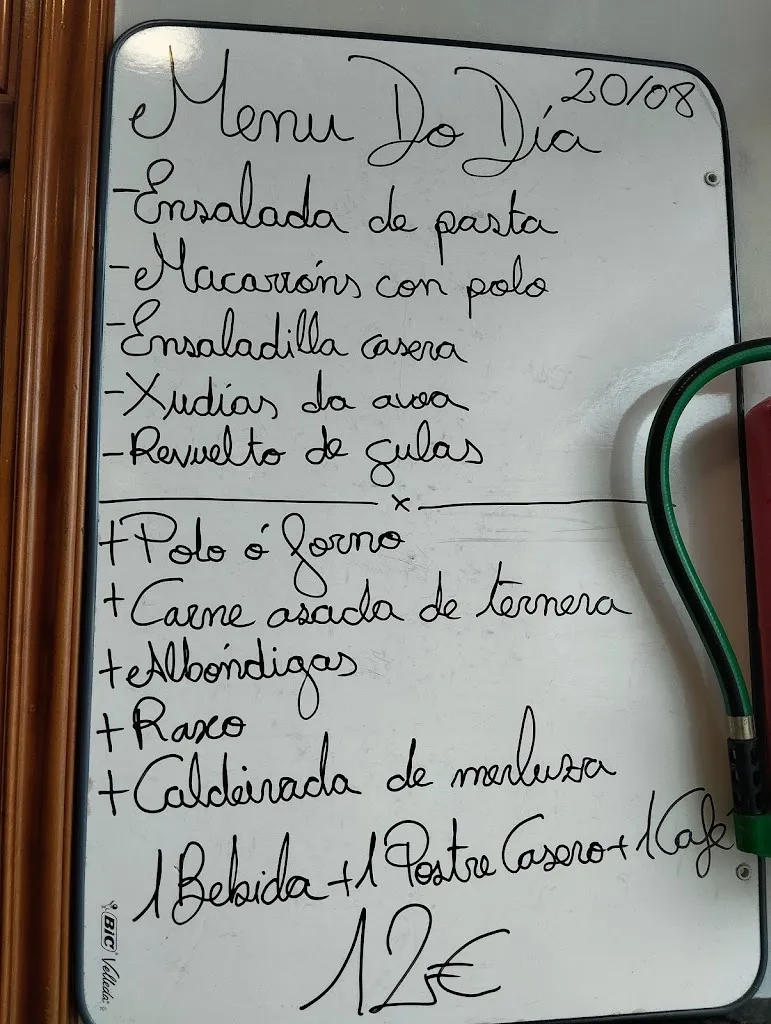 Menu Do Día 20/08
-Ensalada de pasta
-Macarróns con polo
-Ensaladilla casera
-Xudías da avoa
-Revuelto de gulas
x
+Polo ó forno
+Carne asada de ternera
+Albóndigas
+Raxo
+Caldeirada de merluza
1 Bebida + 1 Postre Casero + 1 Café
12€
BIC Velleda